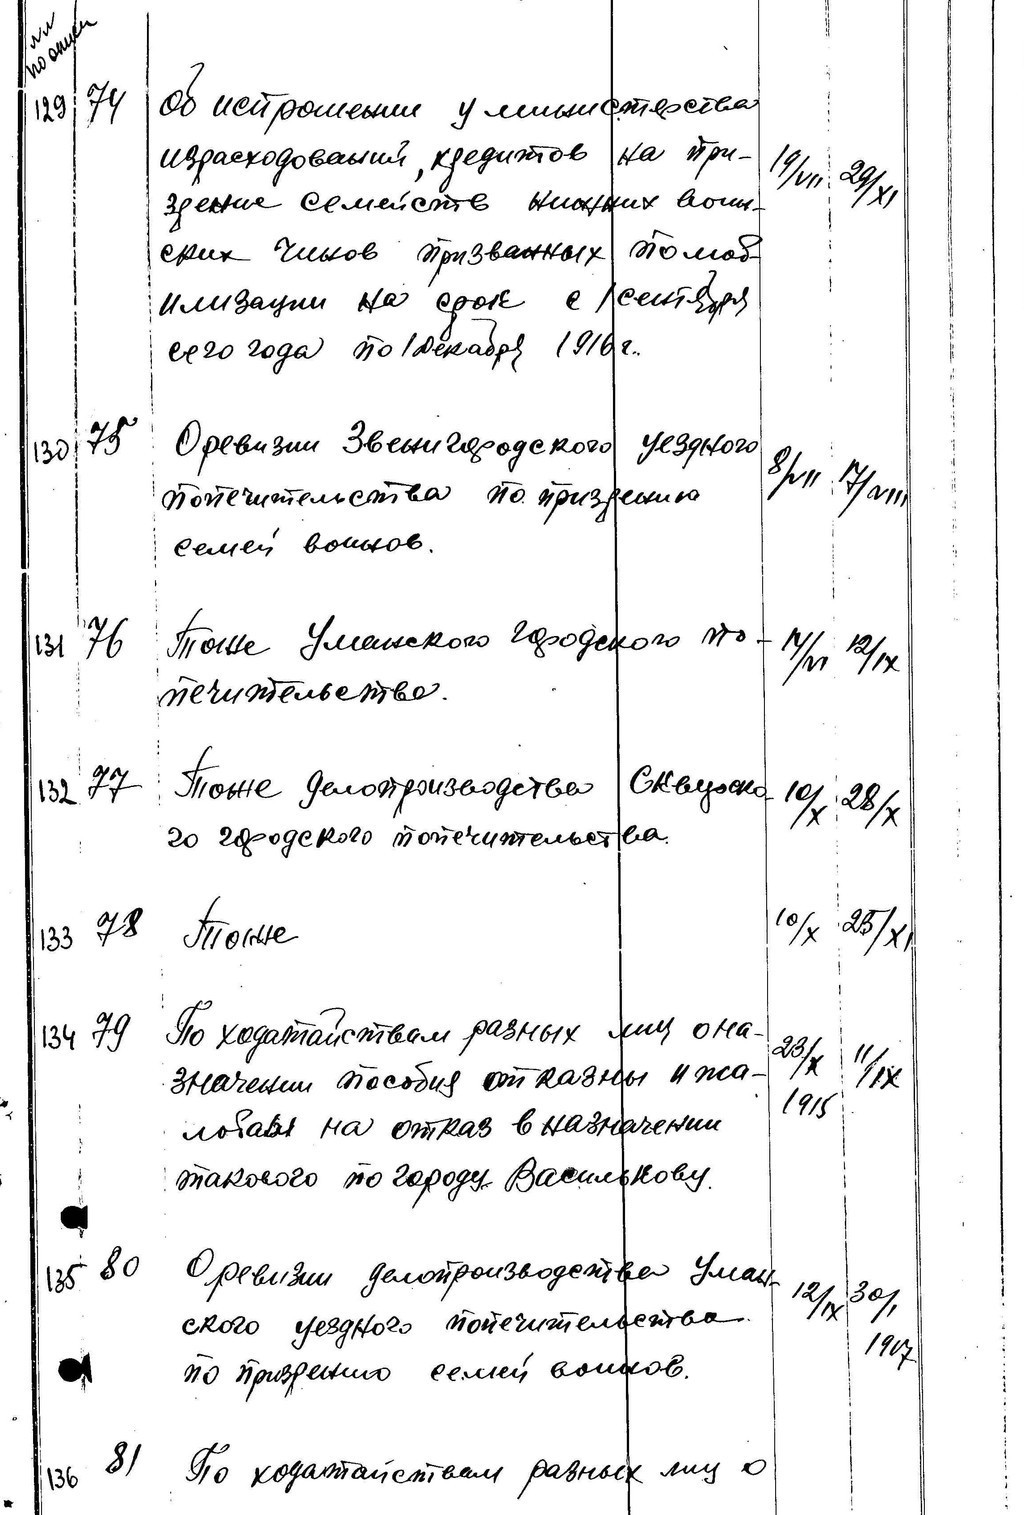 №№
по описи
129 74 Об испрошении у министерства
израсходований, кредитов на при-
19/VII 29/XI
зрение семейств нижних воин-
ских чинов призванных по моб-
илизации на срок с 1 сентября
сего года по 1 декабря 1916 г.
130 75 О ревизии Звенигородского уездного
8/VII 17/VIII
попечительства по призрению
семей воинов.
131 76 Тоже Уманского городского по-
12/IX
печительства.
132 77 Тоже делопроизводства Сквирско-
10/X 28/X
го городского попечительства.
133 78 Тоже 10/X 25/XI
134 79 По ходатайствам разных лиц о на-
23/X 11/IX
значении пособия отказны и жа-
1915
лобам на отказ в назначении
такового по городу Василькову.
135 80 О ревизии делопроизводства Уман-
12/IX 30/I
ского уездного попечительства
1917
по призрению семей воинов.
136 81 По ходатайствам разных лиц о